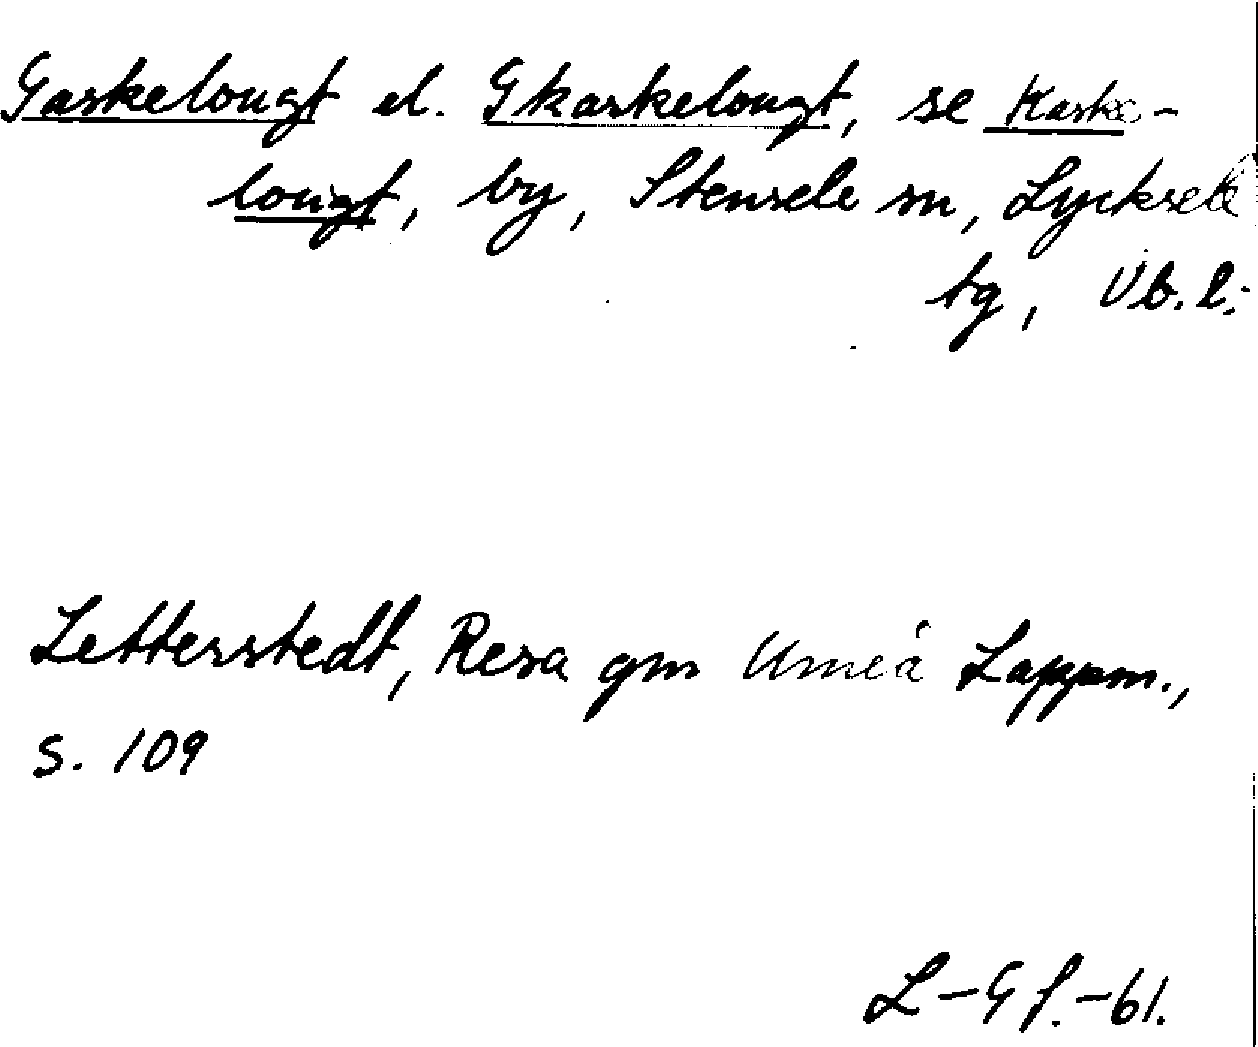 Gaskelougt el. Gkaskelougt, se Kaske-
lougt, by, Stensele sn, Lycksele
tg, Vb. l.
Letterstedt, Resa gm Umeå Lappm.,
s. 109
L-G f.-61.